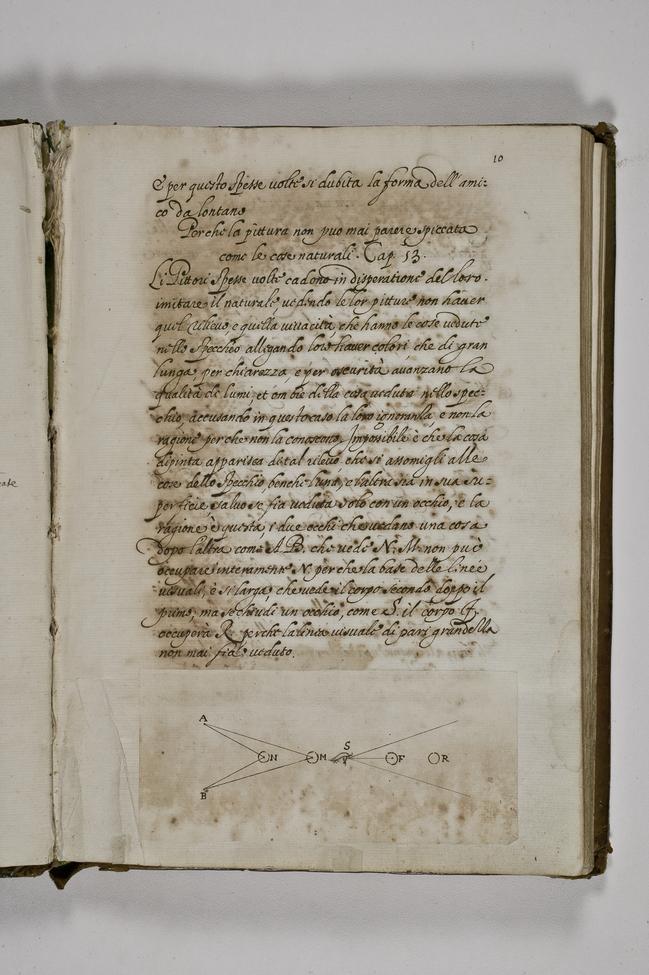 10
E per questo spesse volte si dubita la forma dell'ami:
co da lontano
Perche la pittura non puo mai parere spiccata
come le cose naturali. Cap. 13.
Li Pittori spesse volte cadono in disperatione del loro
imitare il naturale, vedendo le lor pitture non haver
quel rilievo, e quella vivacità, che hanno le cose vedute
nello specchio allegando loro haver colori, che di gran
lunga, per chiarezza, e per oscurità avanzano la
qualità de lumi, et ombre della cosa veduta nello spec=
chio, accusando in questo caso la loro ignoranza, e non la
ragione perche non la conoscono. Impossibile è che la cosa
dipinta apparisca di tal rilevo, che si assomigli alle
cose dello specchio, benche l'una, e l'altra sia in sua su=
perficie, salvo se fia veduta solo con un occhio, e la
ragione è questa, i due occhi che vedano una cosa
dopo l'altra come A. B. che vede N. M. non può
occupare interamente N. perche la base delle linee
visuali, è si larga, che vede il corpo secondo doppo il
primo, ma se chiudi un occhio, come S. il corpo F.
occuperà R. perche la linea visuale
non mai fia veduto.
A
S
N M F R
B
cate